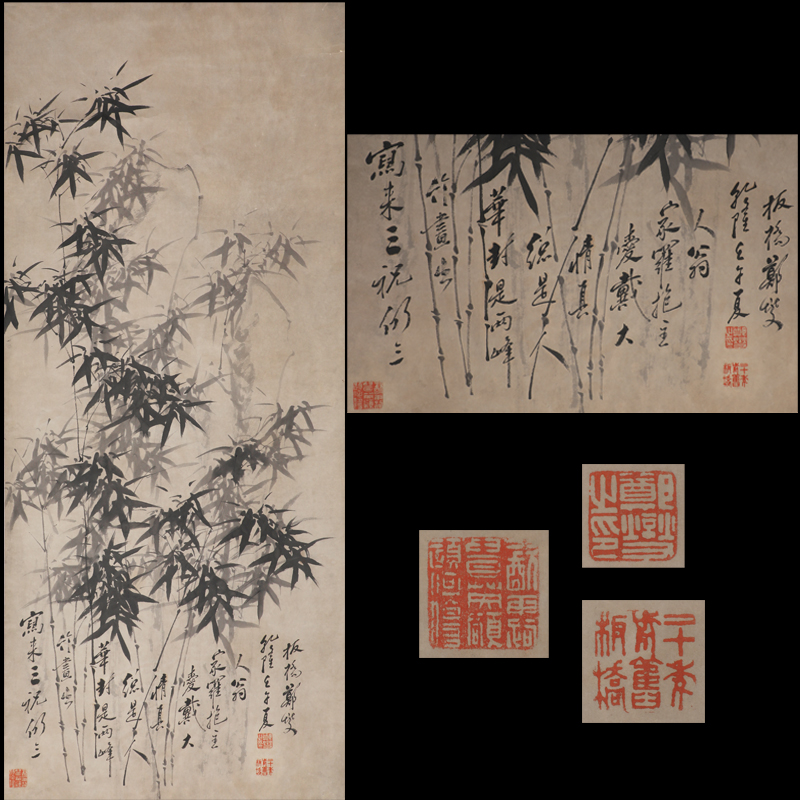 寫來三祝仍三
竹畫出
華封是兩峰
總是人
情真
愛戴大
家羅拜主
人翁
乾隆壬午夏
板橋鄭燮
寫來三祝仍三
竹畫出
華封是兩峰
總是人
情真
愛戴大
家羅拜主
人翁
乾隆壬午夏
板橋鄭燮
鄭燮
之印
二十年
前舊
板橋